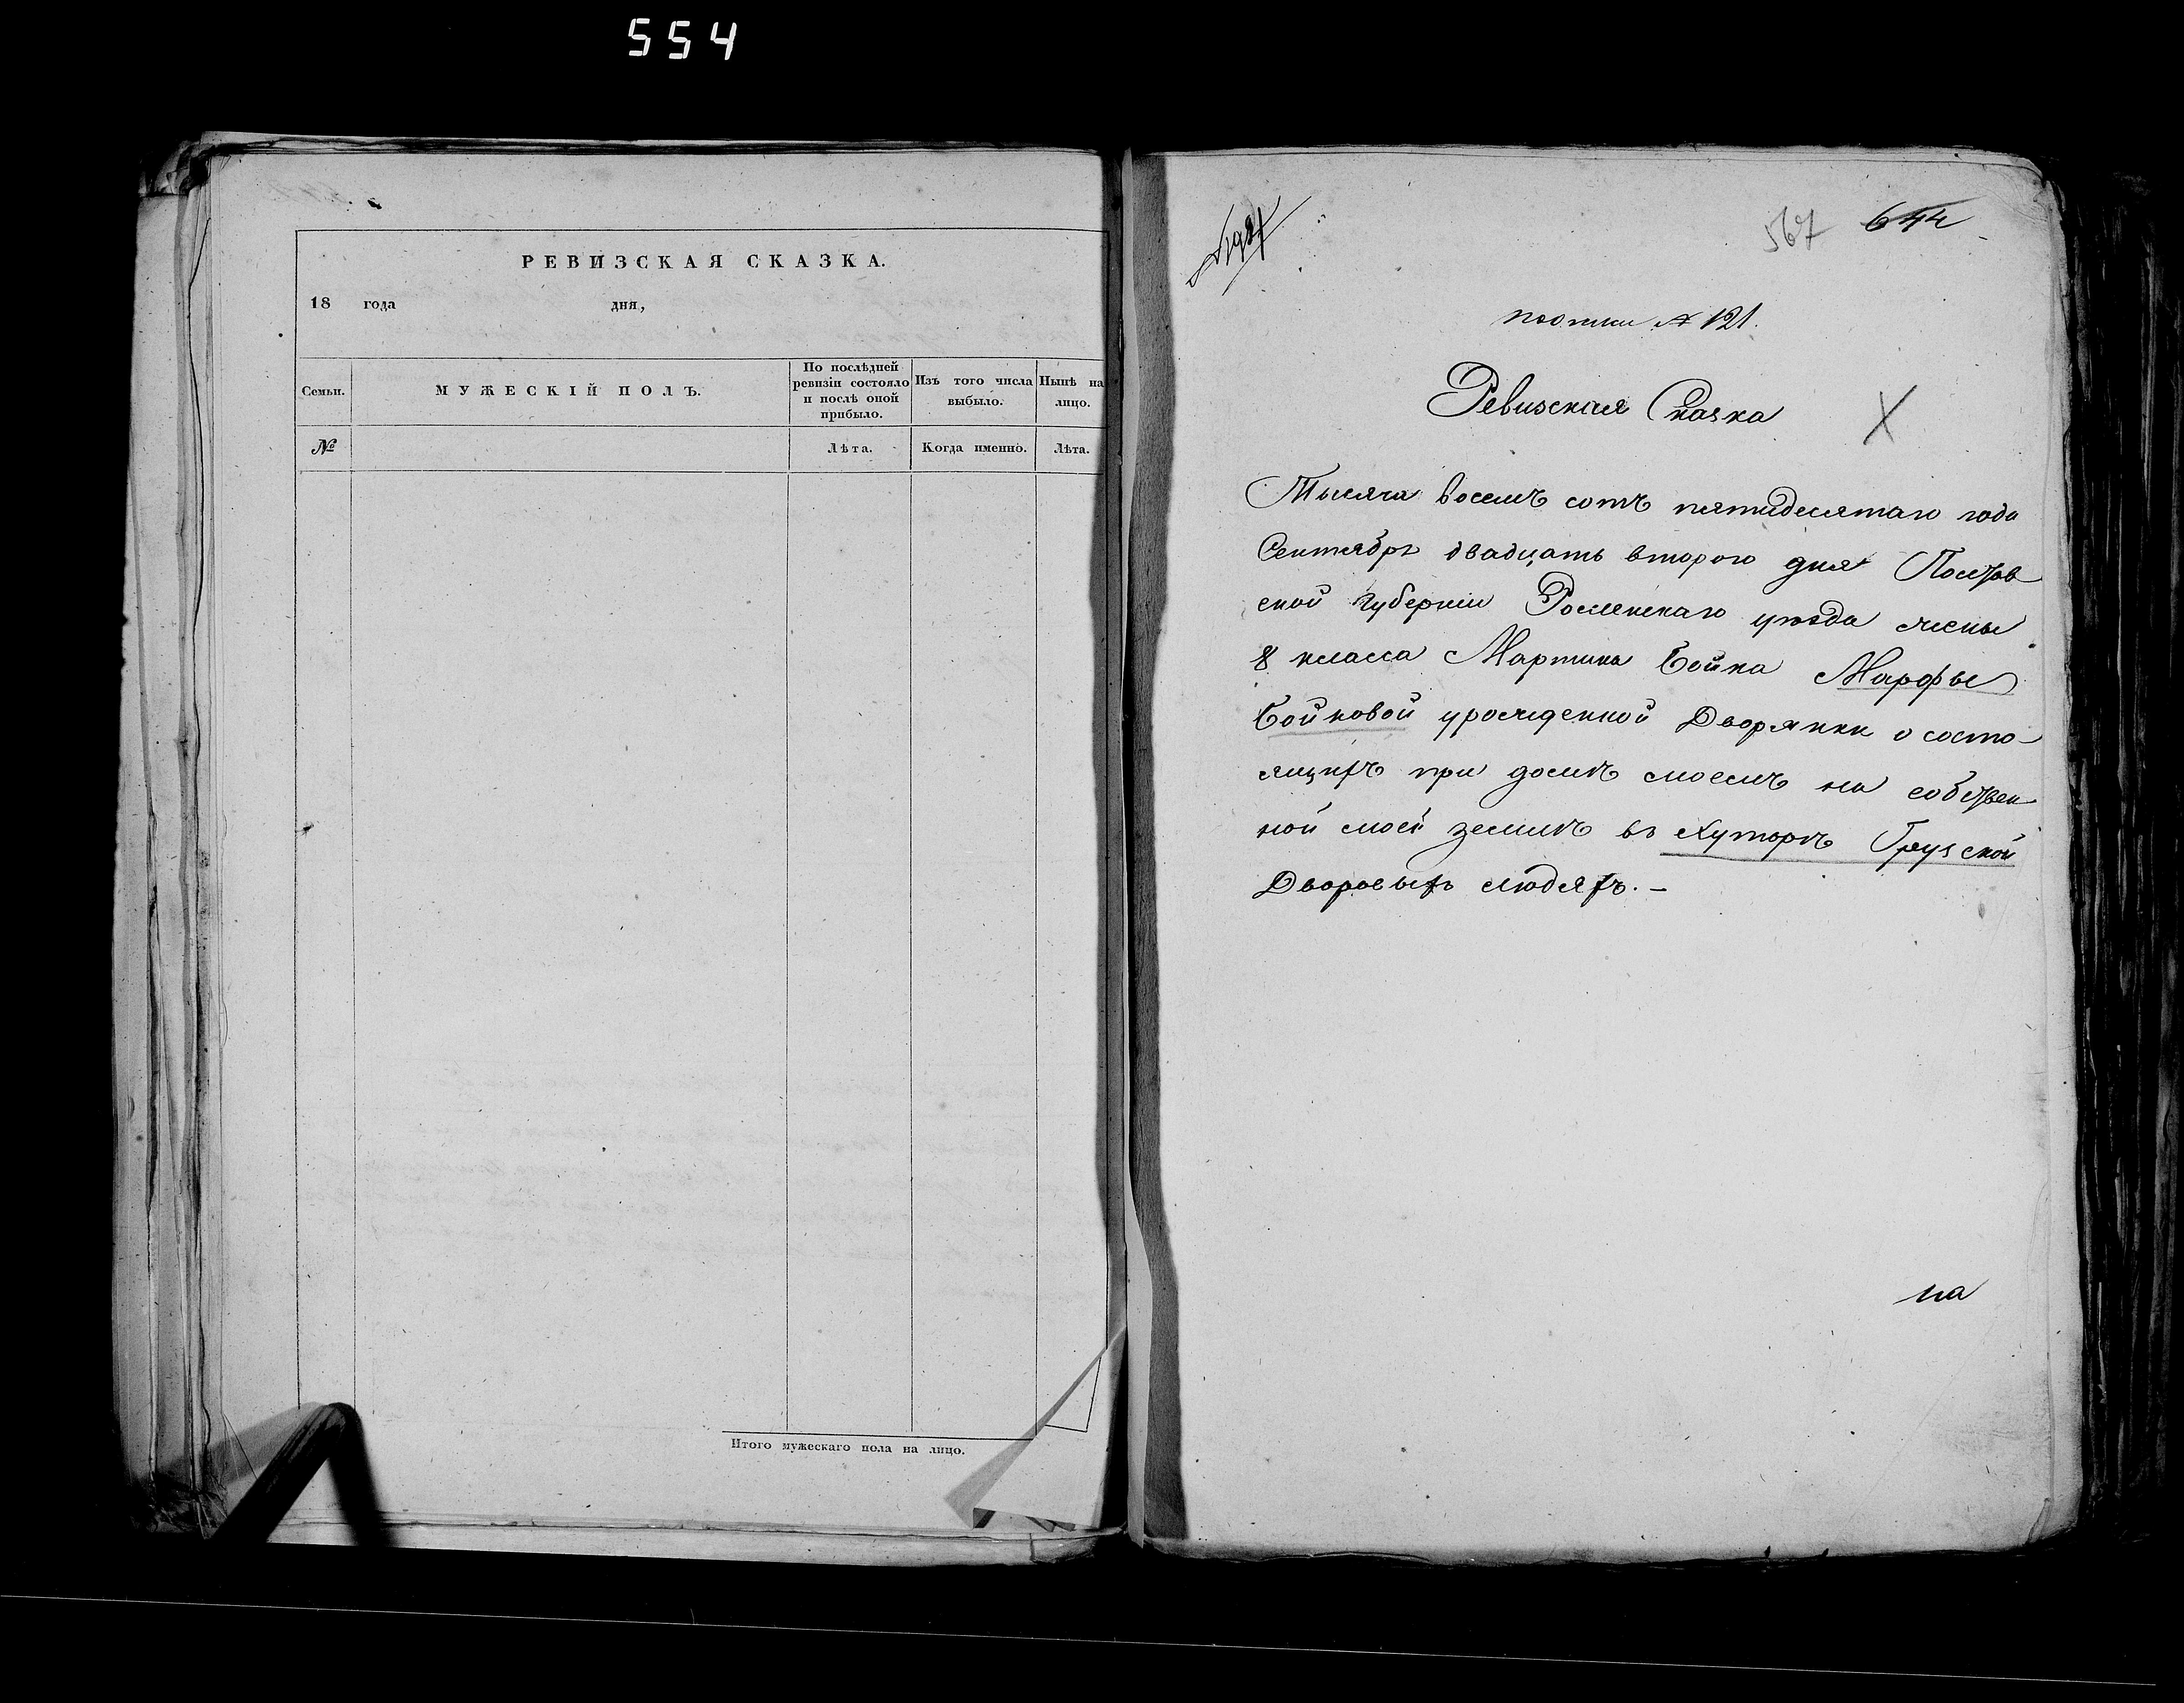 554
РЕВИЗСКАЯ СКАЗКА.
18 года дня,
Семьи.
МУЖЕСКІЙ ПОЛЪ.
По послѣдней ревизіи состояло и послѣ оной прибыло.
Изъ того числа выбыло.
Нынѣ на лицо.
№
Лѣта.
Когда именно.
Лѣта.
Итого мужескаго пола на лицо.
567 644
№ 121.
Ревизская Сказка
Тысяча восемъ сотъ пятидесятаго года
Сентябрь двадцать второго дня Полтав
ской губерніи Роменскаго уѣзда жены
8 класса Мартина Бойка Марфы
Бойковой урожденной Дворянки о состо-
ящихъ при домѣ моемъ на собствен
ной моей землѣ въ Хуторѣ Грузской
Дворовыхъ людяхъ. -
на